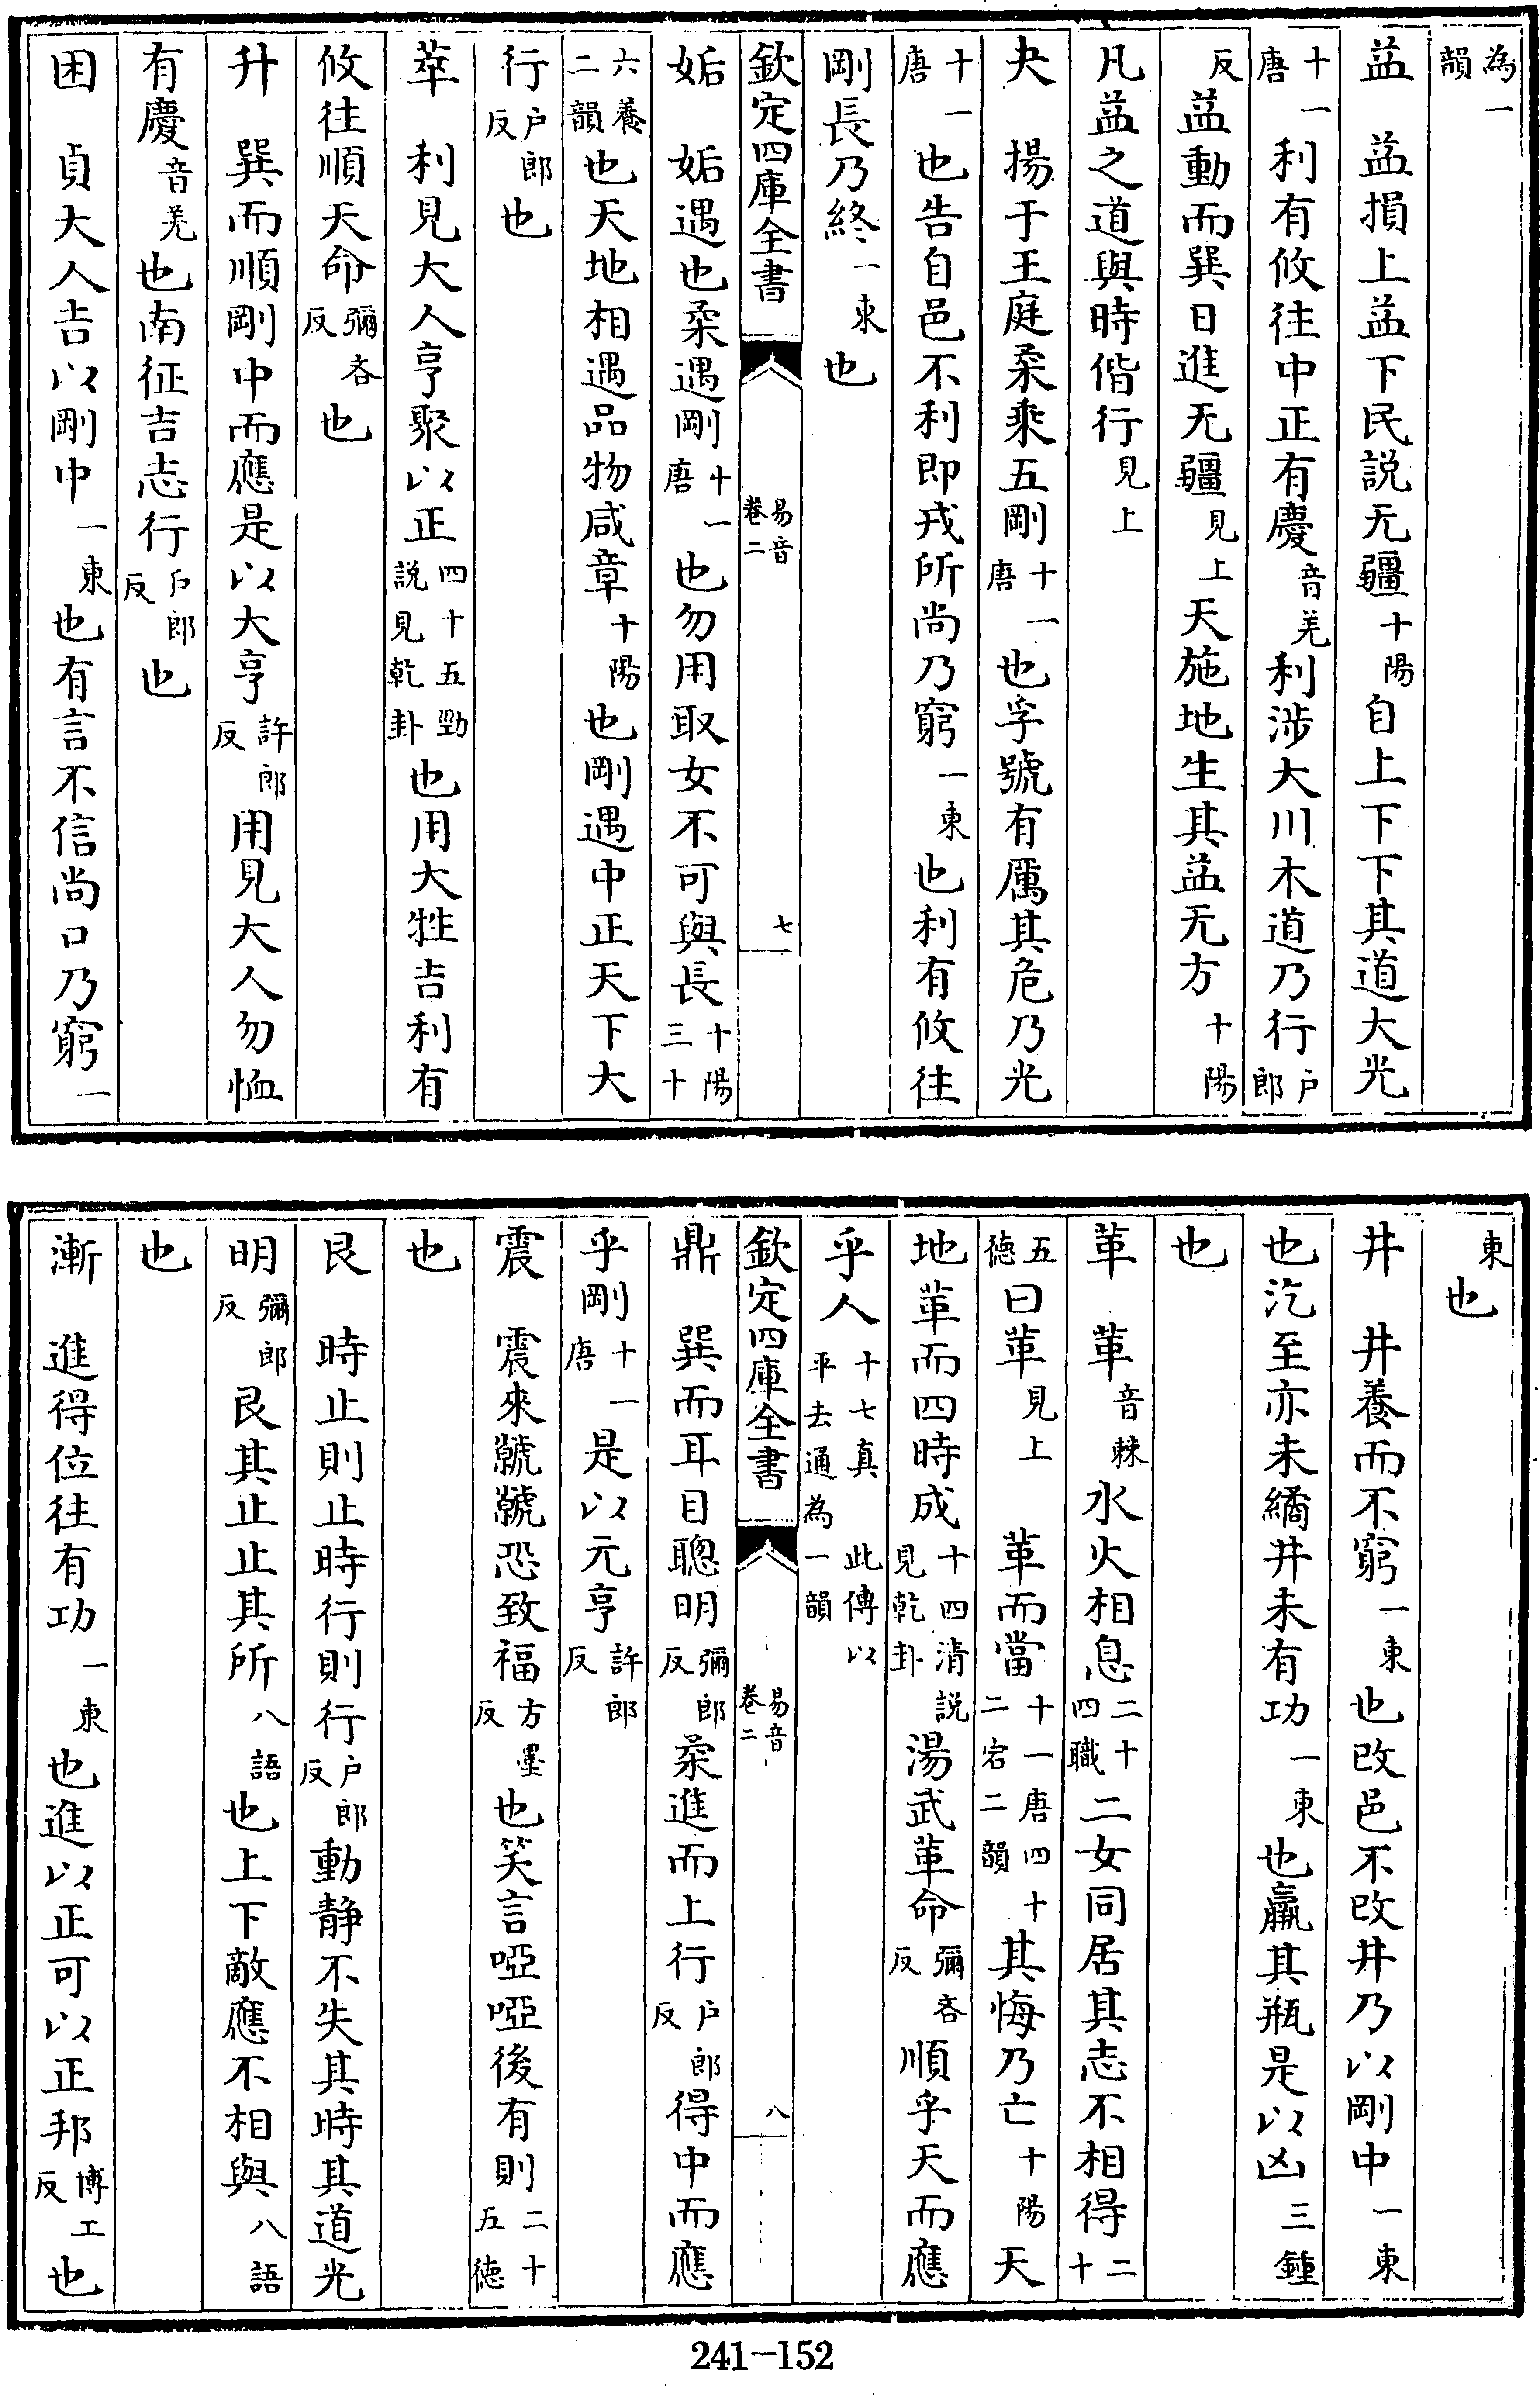 為一韻
益　益損上益下民說无疆十陽自上下下其道大光
十一唐利有攸往中正有慶音羌利涉大川木道乃行戶郎
反益動而巽日進无疆見上天施地生其益无方十陽
凡益之道與時偕行見上
夬　揚于王庭柔乘五剛十一唐也孚號有厲其危乃光
十一唐也告自邑不利即戎所尚乃窮一東也利有攸往
剛長乃終一東也
欽定四庫全書　易音卷二　七
姤　姤遇也柔遇剛十一唐也勿用取女不可與長十陽三十
六養二韻也天地相遇品物咸章十陽也剛遇中正天下大
行戶郎反也
萃　利見大人亨聚以正四十五勁說見乾卦也用大牲吉利有
攸往順天命彌吝反也
升　巽而順剛中而應是以大亨許郎反用見大人勿恤
有慶音羌也南征吉志行戶郎反也
困　貞大人吉以剛中一東也有言不信尚口乃窮一
東也
井　井養而不窮一東也改邑不改井乃以剛中一東
也汔至亦未繘井未有功一東也羸其瓶是以凶三鍾
也
革　革音棘水火相息二十四職二女同居其志不相得二十
五德曰革見上　革而當十一唐四十二宕二韻其悔乃亡十陽天
地革而四時成十四清說見乾卦湯武革命彌吝反順乎天而應
乎人十七真　此傳以平去通為一韻
欽定四庫全書　易音卷二　八
鼎　巽而耳目聰明彌郎反柔進而上行戶郎反得中而應
乎剛十一唐是以元亨許郎反
震　震來虩虩恐致福方墨反也笑言啞啞後有則二十五德
也
艮　時止則止時行則行戶郎反動靜不失其時其道光
明彌郎反艮其止止其所八語也上下敵應不相與八語
也
漸　進得位往有功一東也進以正可以正邦博工反也
241-152